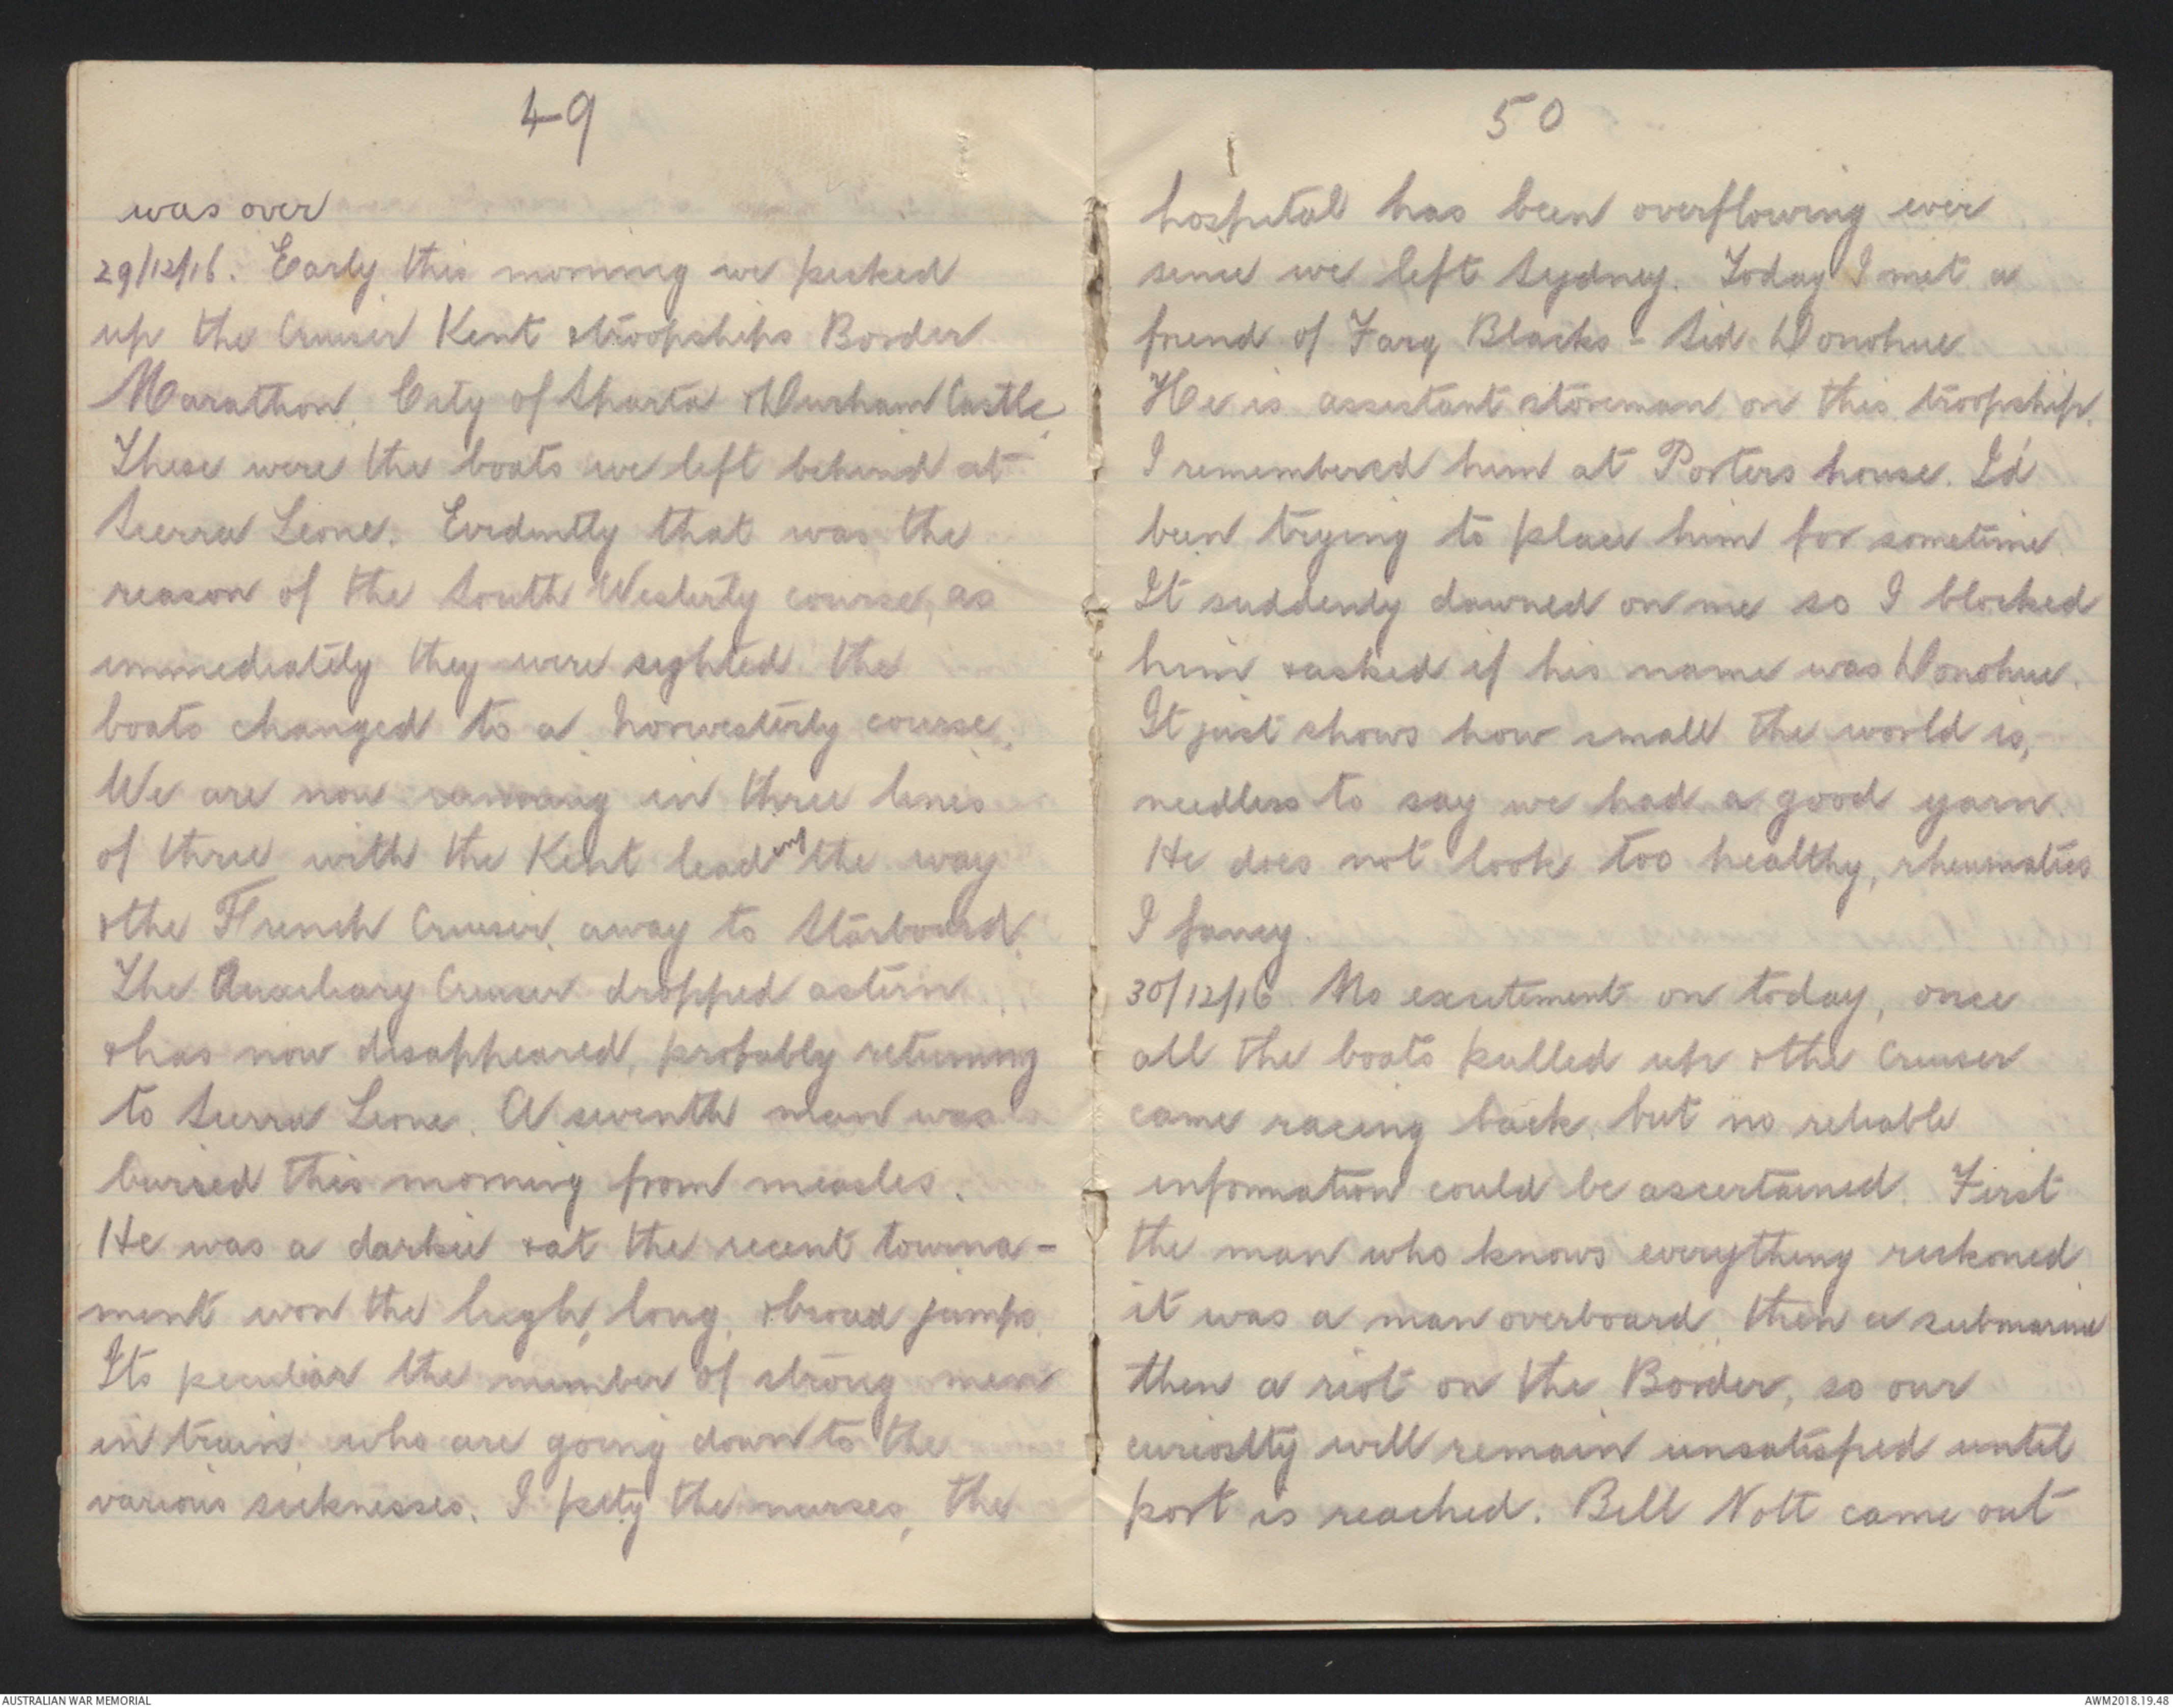 49
was over
29/12/16. Early this morning we picked
up the Cruiser Kent & troopships Border
Marathon, City of Sparta & Durham Castle,
These were the boats we left behind at
Sierra Leone. Evidently that was the
reason of the South Westerly course, as
immediately they were sighted the
boats changed to a norwesterly course.
We are now running in three lines
of three with the Kent leading the way
& the French Cruiser away to Starboard.
The Auxiliary Cruiser dropped astern
& has now disappeared, probably returning
to Sierra Leone. A seventh man was
buried this morning from measles.
He was a darkie & at the recent tourna-
ment won the high, long, & broad jumps.
Its peculiar the number of strong men
in train, who are going down to the
various sicknesses. I pity the nurses, the
50
hospital has been overflowing ever
since we left Sydney. Today I met a
friend of Farg Blacks - Sid Donohue
He is assistant storeman on this troopship.
I remembered him at Porters house. I'd
been trying to place him for sometime.
It suddenly dawned on me so I blocked
him & asked if his name was Donohue.
It just shows how small the world is,
needless to say we had a good yarn.
He does not look too healthy, rheumatics
I fancy.
30/12/16 No excitement on today, once
all the boats pulled up & the Cruiser
came racing back, but no reliable
information could be ascertained. First
the man who knows everything reckoned
it was a man overboard, then a submarine
then a riot on the Border, so our
curiostty will remain unsatisfied until
port is reached. Bill Nott came out
AUSTRALIAN WAR MEMORIAL
AWM2018.19.48